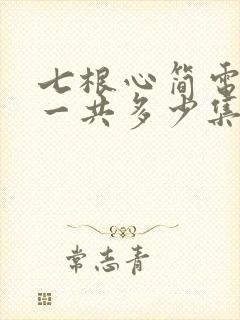 七根心简电
一共多少集
常志青